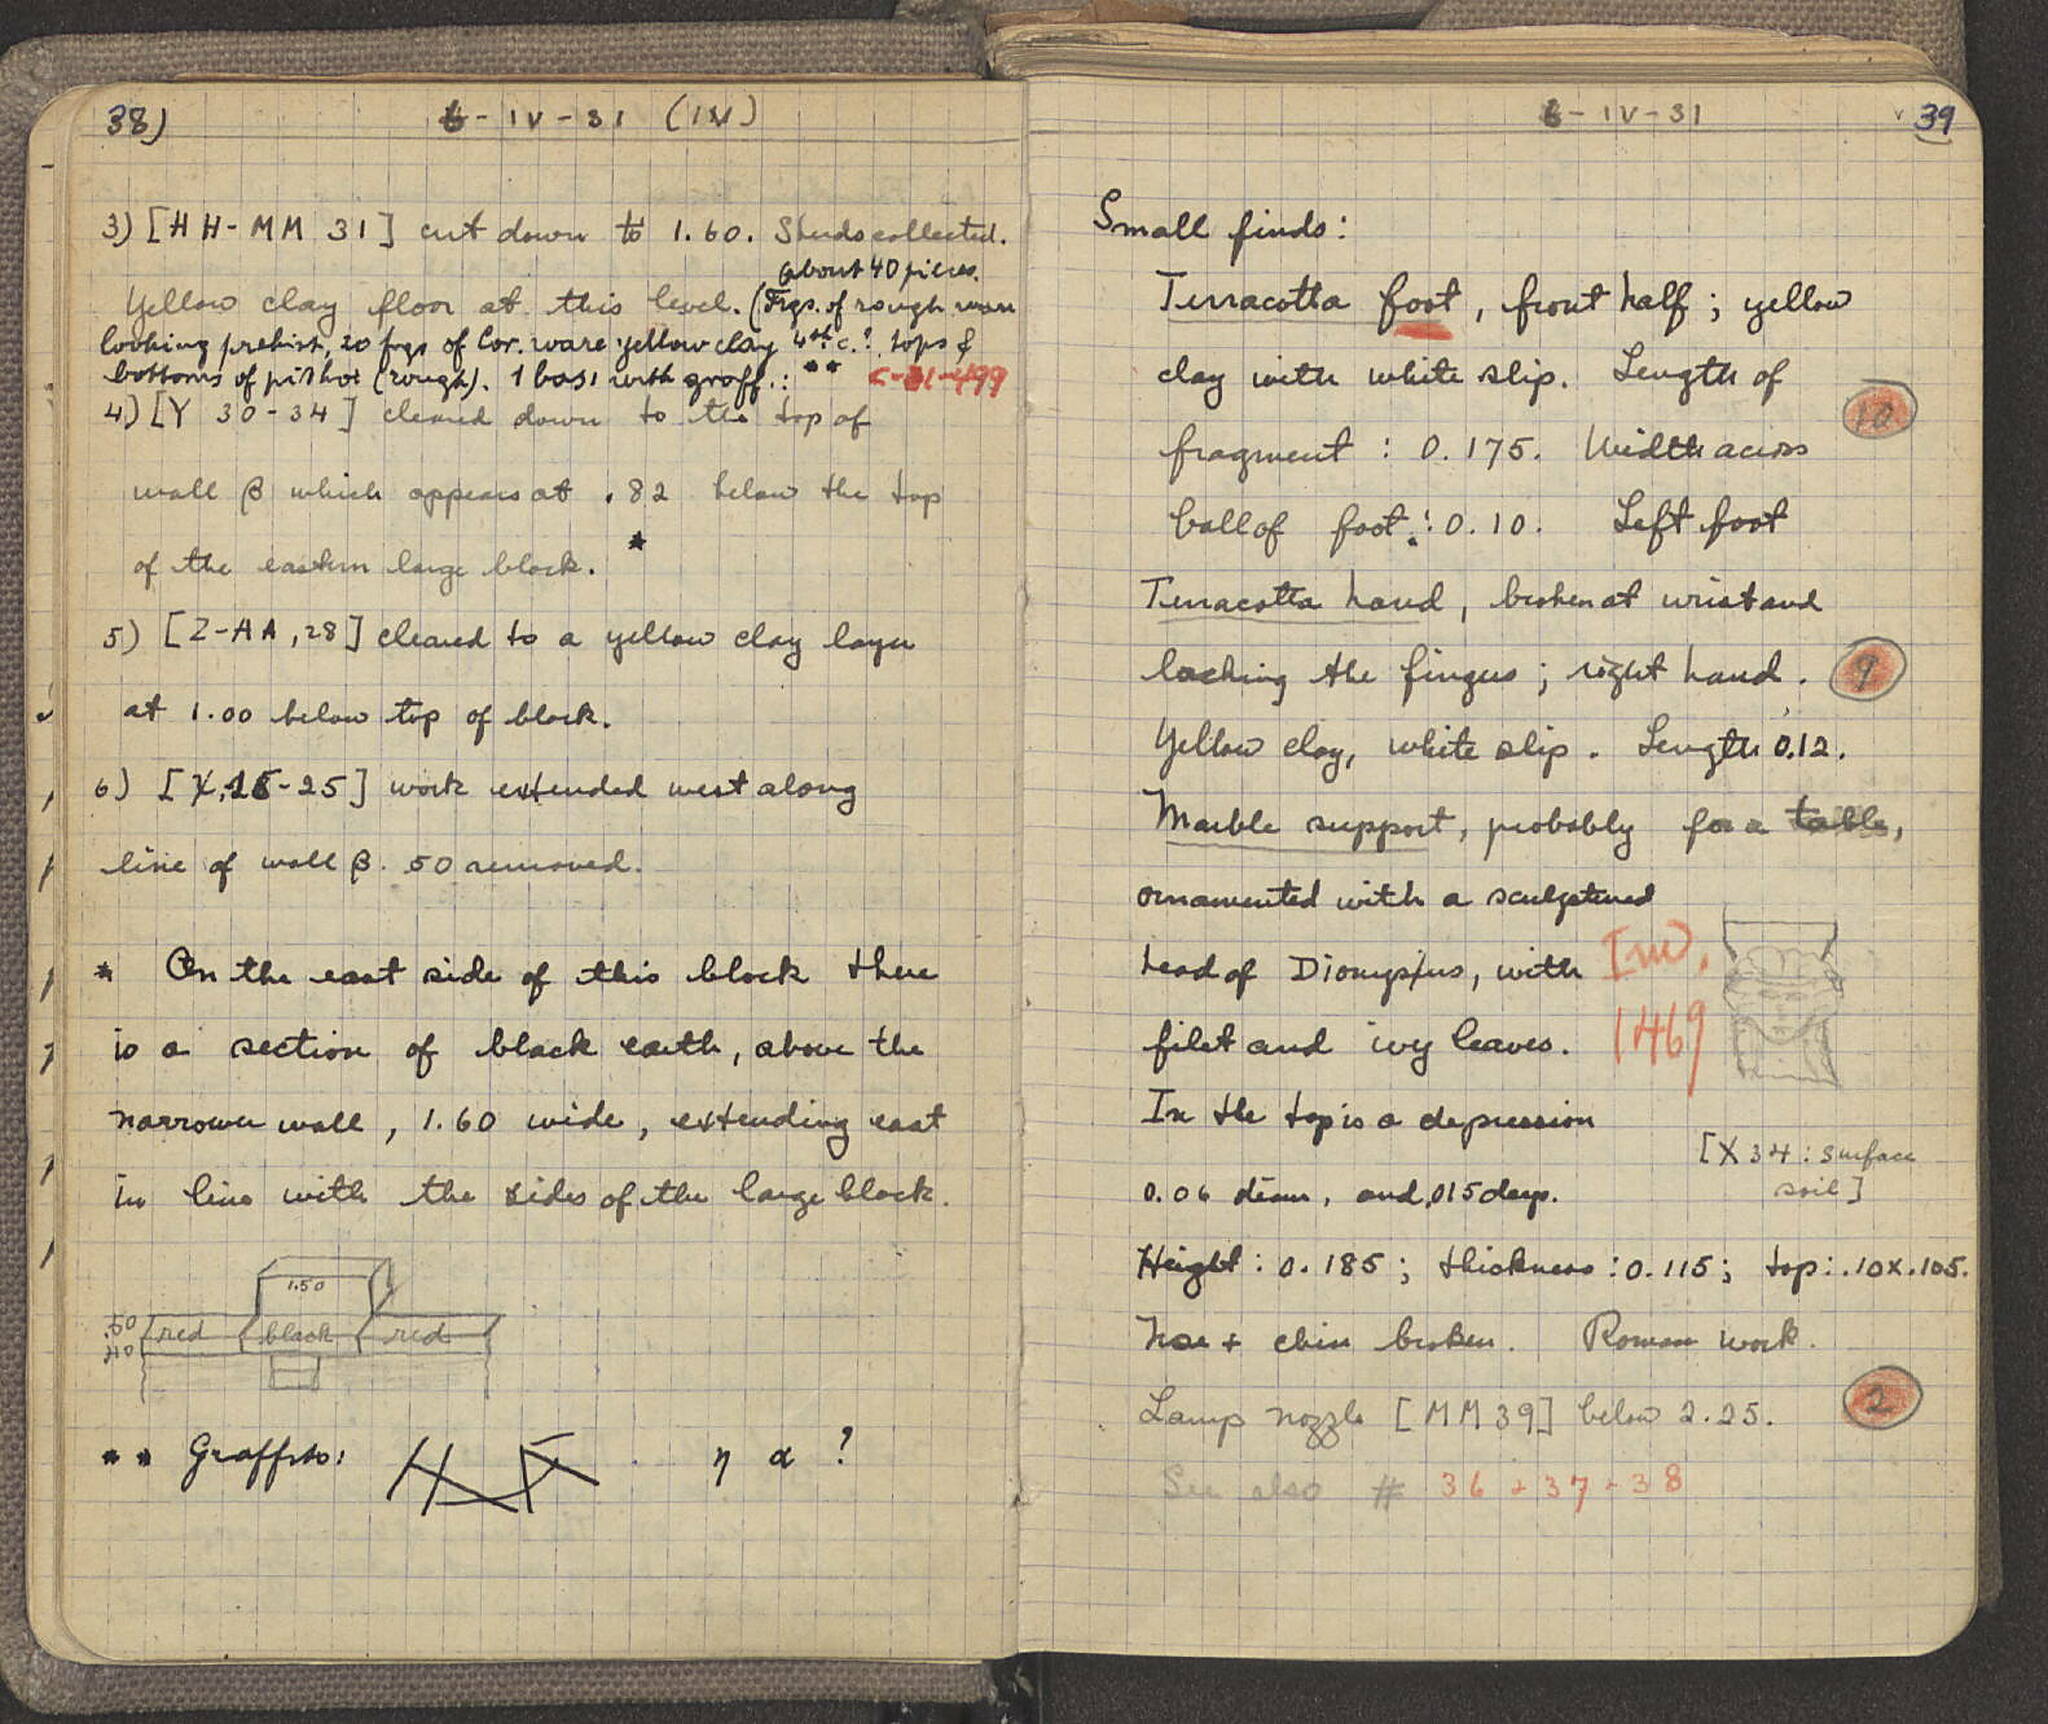 38)
6-IV-31 (IV)
3) [HH-MM 31] cut down to 1.60. Sherds collected.
about 40 pieces.
Yellow clay floor at this level. (Frgs. of rough ware
looking prehist, 20 frgs of Cor. ware yellow clay 4th c.? tops &
bottoms of pithoi (rough). 1 base with graff.: ** C-31-499
4) [Y 30-34] cleared down to the top of
wall β which appears at .82 below the top
of the eastern large block. *
5) [Z-AA, 28] cleared to a yellow clay layer
at 1.00 below top of block.
6) [X, 15-25] work extended west along
line of wall β. 50 removed.
* On the east side of this block there
is a section of black earth, above the
narrower wall, 1.60 wide, extending east
in line with the sides of the large block.
1.50
.50 red black red
.40
** Graffito: η α ?
6-IV-31
39
Small finds:
Terracotta foot, front half; yellow
clay with white slip. Length of
10
fragment: 0.175. Width across
ball of foot: 0.10. Left foot
Terracotta hand, broken at wrist and
lacking the fingers; right hand. 9
Yellow clay, white slip. Length 0.12.
Marble support, probably for a table,
ornamented with a sculptured
head of Dionysius, with Inv.
filet and ivy leaves. 1469
In the top is a depression
[X 34: surface
soil]
0.06 diam, and .015 deep.
Height: 0.185; thickness: 0.115; top: .10x.105.
Nose + chin broken. Roman work.
Lamp nozzle [MM39] below 2.25. 2
See also # 36 - 37 - 38